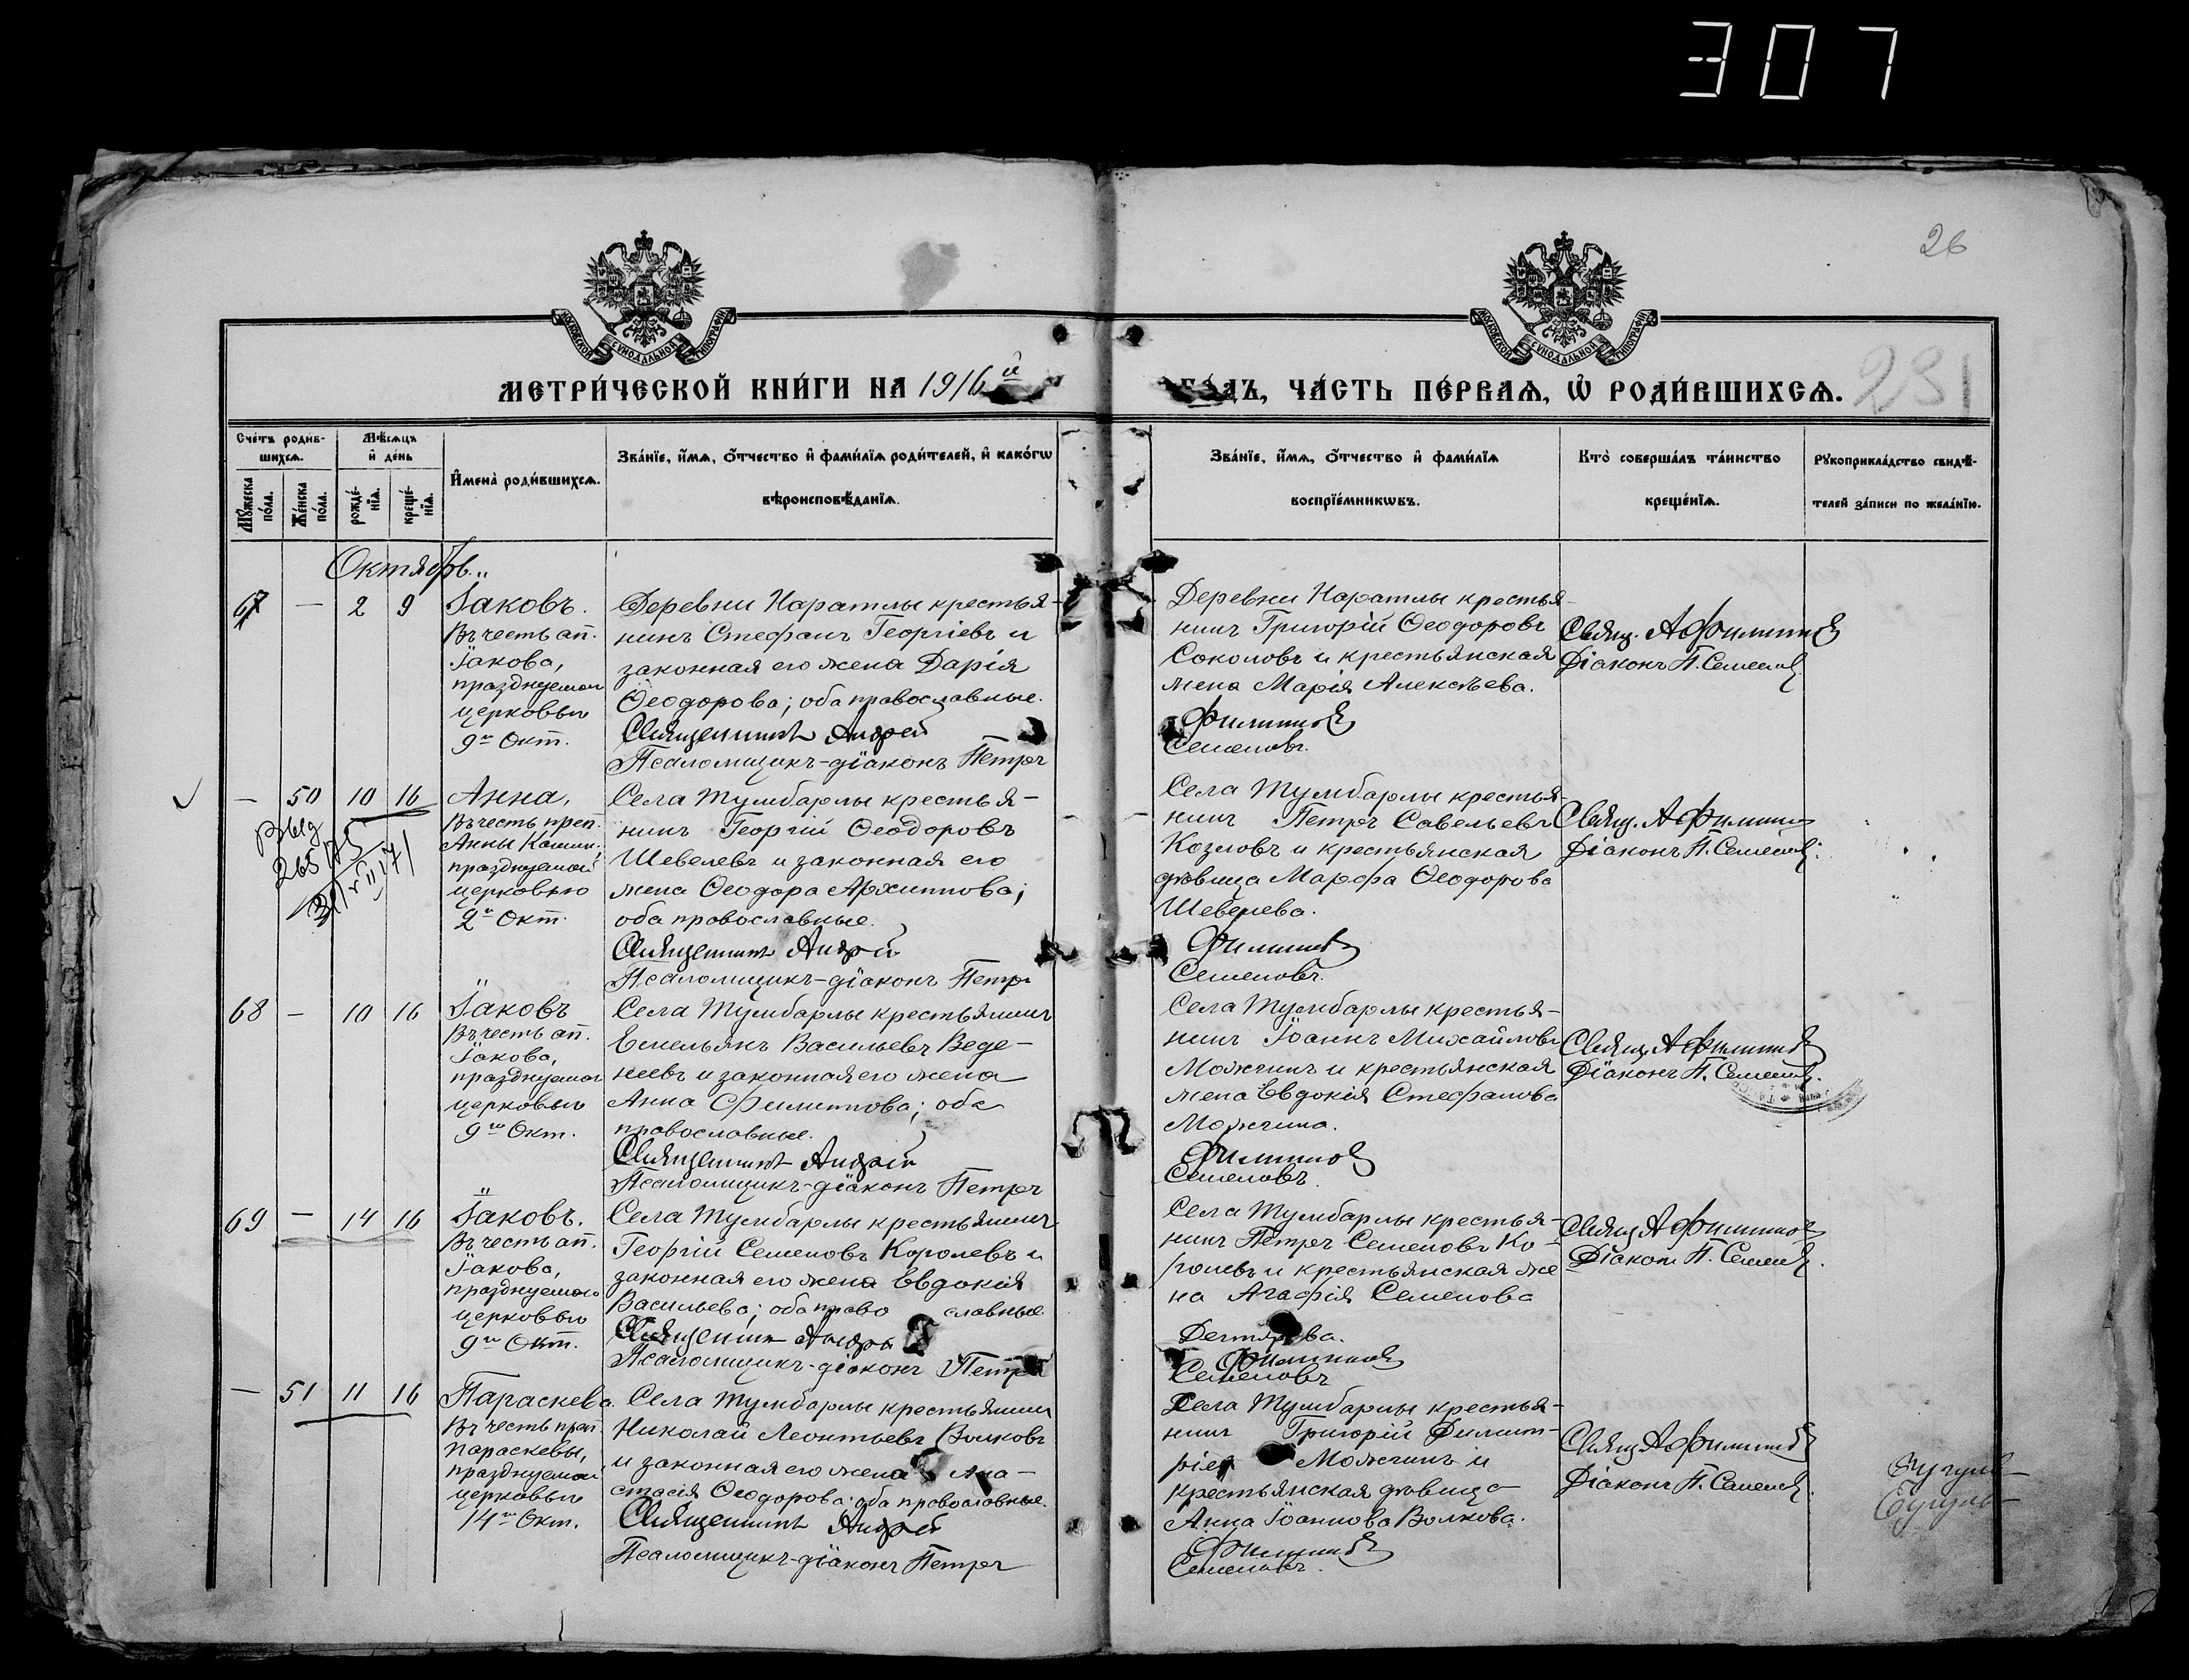 307
26
МОСКОВСКОЙ СУНОДАЛЬНОЙ ТИПОГРАФІИ
МОСКОВСКОЙ СУНОДАЛЬНОЙ ТИПОГРАФІИ
МЕТРИ́ЧЕСКОЙ КНИ́ГИ НА 1916й
ГОДЪ, ЧА́СТЬ ПЕ́РВАѦ, Ѽ РОДИ́ВШИХСѦ.
231
Сче́тъ роди́в-
шихсѧ.
Мѣ́сѧцъ
и҆ де́нь
Мꙋ́жеска
по́ла.
Же́нска
по́ла.
рожде́-
нїѧ.
креще́-
нїѧ.
И҆мена̀ роди́вшихсѧ.
Зва́нїе, и҆́мѧ, ѻ҆́тчество и҆ фами́лїѧ роди́телей, и҆ како́гѡ
вѣроисповѣ́данїѧ.
Зва́нїе, и҆́мѧ, ѻ҆́тчество и҆ фами́лїѧ
воспрїе́мникѡвъ.
Кто̀ соверша́лъ та́инство
креще́нїѧ.
Рꙋкоприкла́дство свидѣ́-
телей за́писи по жела́нїю.
Октябрь.
67 — 2 9 Іаковъ.
Въ честь ап.
Іакова,
празднуемаго
церковью
9го Окт.
Деревни Наратлы крестья-
нинъ Стефанъ Георгіевъ и
законная его жена Дарія
Ѳеодорова; оба православные.
Священникъ Андрей
Псаломщикъ-діаконъ Петръ
Деревни Наратлы крестья-
нинъ Григорій Ѳеодоровъ
Соколовъ и крестьянская
жена Марія Алексѣева.
Филипповъ
Семеновъ.
Свящ. А Филипповъ
Діаконъ П. Семеновъ
— 50 10 16 Анна,
Въ честь преп.
Анны Кашин.
празднуемой
церковью
2го Окт.
Выд
265
Села Тумбарлы крестья-
нинъ Георгій Ѳеодоровъ
Шевелевъ и законная его
жена Ѳеодора Архиппова;
оба православные.
Священникъ Андрей
Псаломщикъ-діаконъ Петръ
Села Тумбарлы крестья-
нинъ Петръ Савельевъ
Козловъ и крестьянская
дѣвица Марфа Ѳеодорова
Шевелева.
Филипповъ
Семеновъ.
Свящ. А Филипповъ
Діаконъ П. Семеновъ.
68 — 10 16 Іаковъ
Въ честь ап.
Іакова,
празднуемаго
церковью
9го Окт.
Села Тумбарлы крестьянинъ
Емельянъ Васильевъ Веде-
неевъ и законная его жена
Анна Филиппова; оба
православные.
Священникъ Андрей
Псаломщикъ-діаконъ Петръ
Села Тумбарлы крестья-
нинъ Іоаннъ Михайловъ
Можгинъ и крестьянская
жена Евдокія Стефанова
Можгина.
Филипповъ
Семеновъ.
Свящ. А Филипповъ
Діаконъ П. Семеновъ.
69 — 14 16 Іаковъ.
Въ честь ап.
Іакова,
празднуемаго
церковью
9го Окт.
Села Тумбарлы крестьянинъ
Георгій Семеновъ Королевъ и
законная его жена Евдокія
Васильева; оба право славные.
Священникъ Андрей
Псаломщикъ-діаконъ Петръ
Села Тумбарлы крестья-
нинъ Петръ Семеновъ Ко-
ролевъ и крестьянская же
на Агафія Семенова
Дегтярева.
Филипповъ
Семеновъ
Свящ А Филипповъ
Діаконъ П. Семеновъ.
— 51 11 16 Параскева.
Въ честь преп.
Параскевы,
празднуемой
церковью
14го Окт.
Села Тумбарлы крестьянинъ
Николай Леонтьевъ Волковъ
и законная его жена Ана-
стасія Ѳеодорова; оба православные.
Священникъ Андрей
Псаломщикъ-діаконъ Петръ
Села Тумбарлы крестья-
нинъ Григорій Димит-
ріевъ Можгинъ и
крестьянская дѣвица
Анна Іоаннова Волкова.
Филипповъ
Семеновъ.
Свящ А Филипповъ
Діаконъ П. Семеновъ.